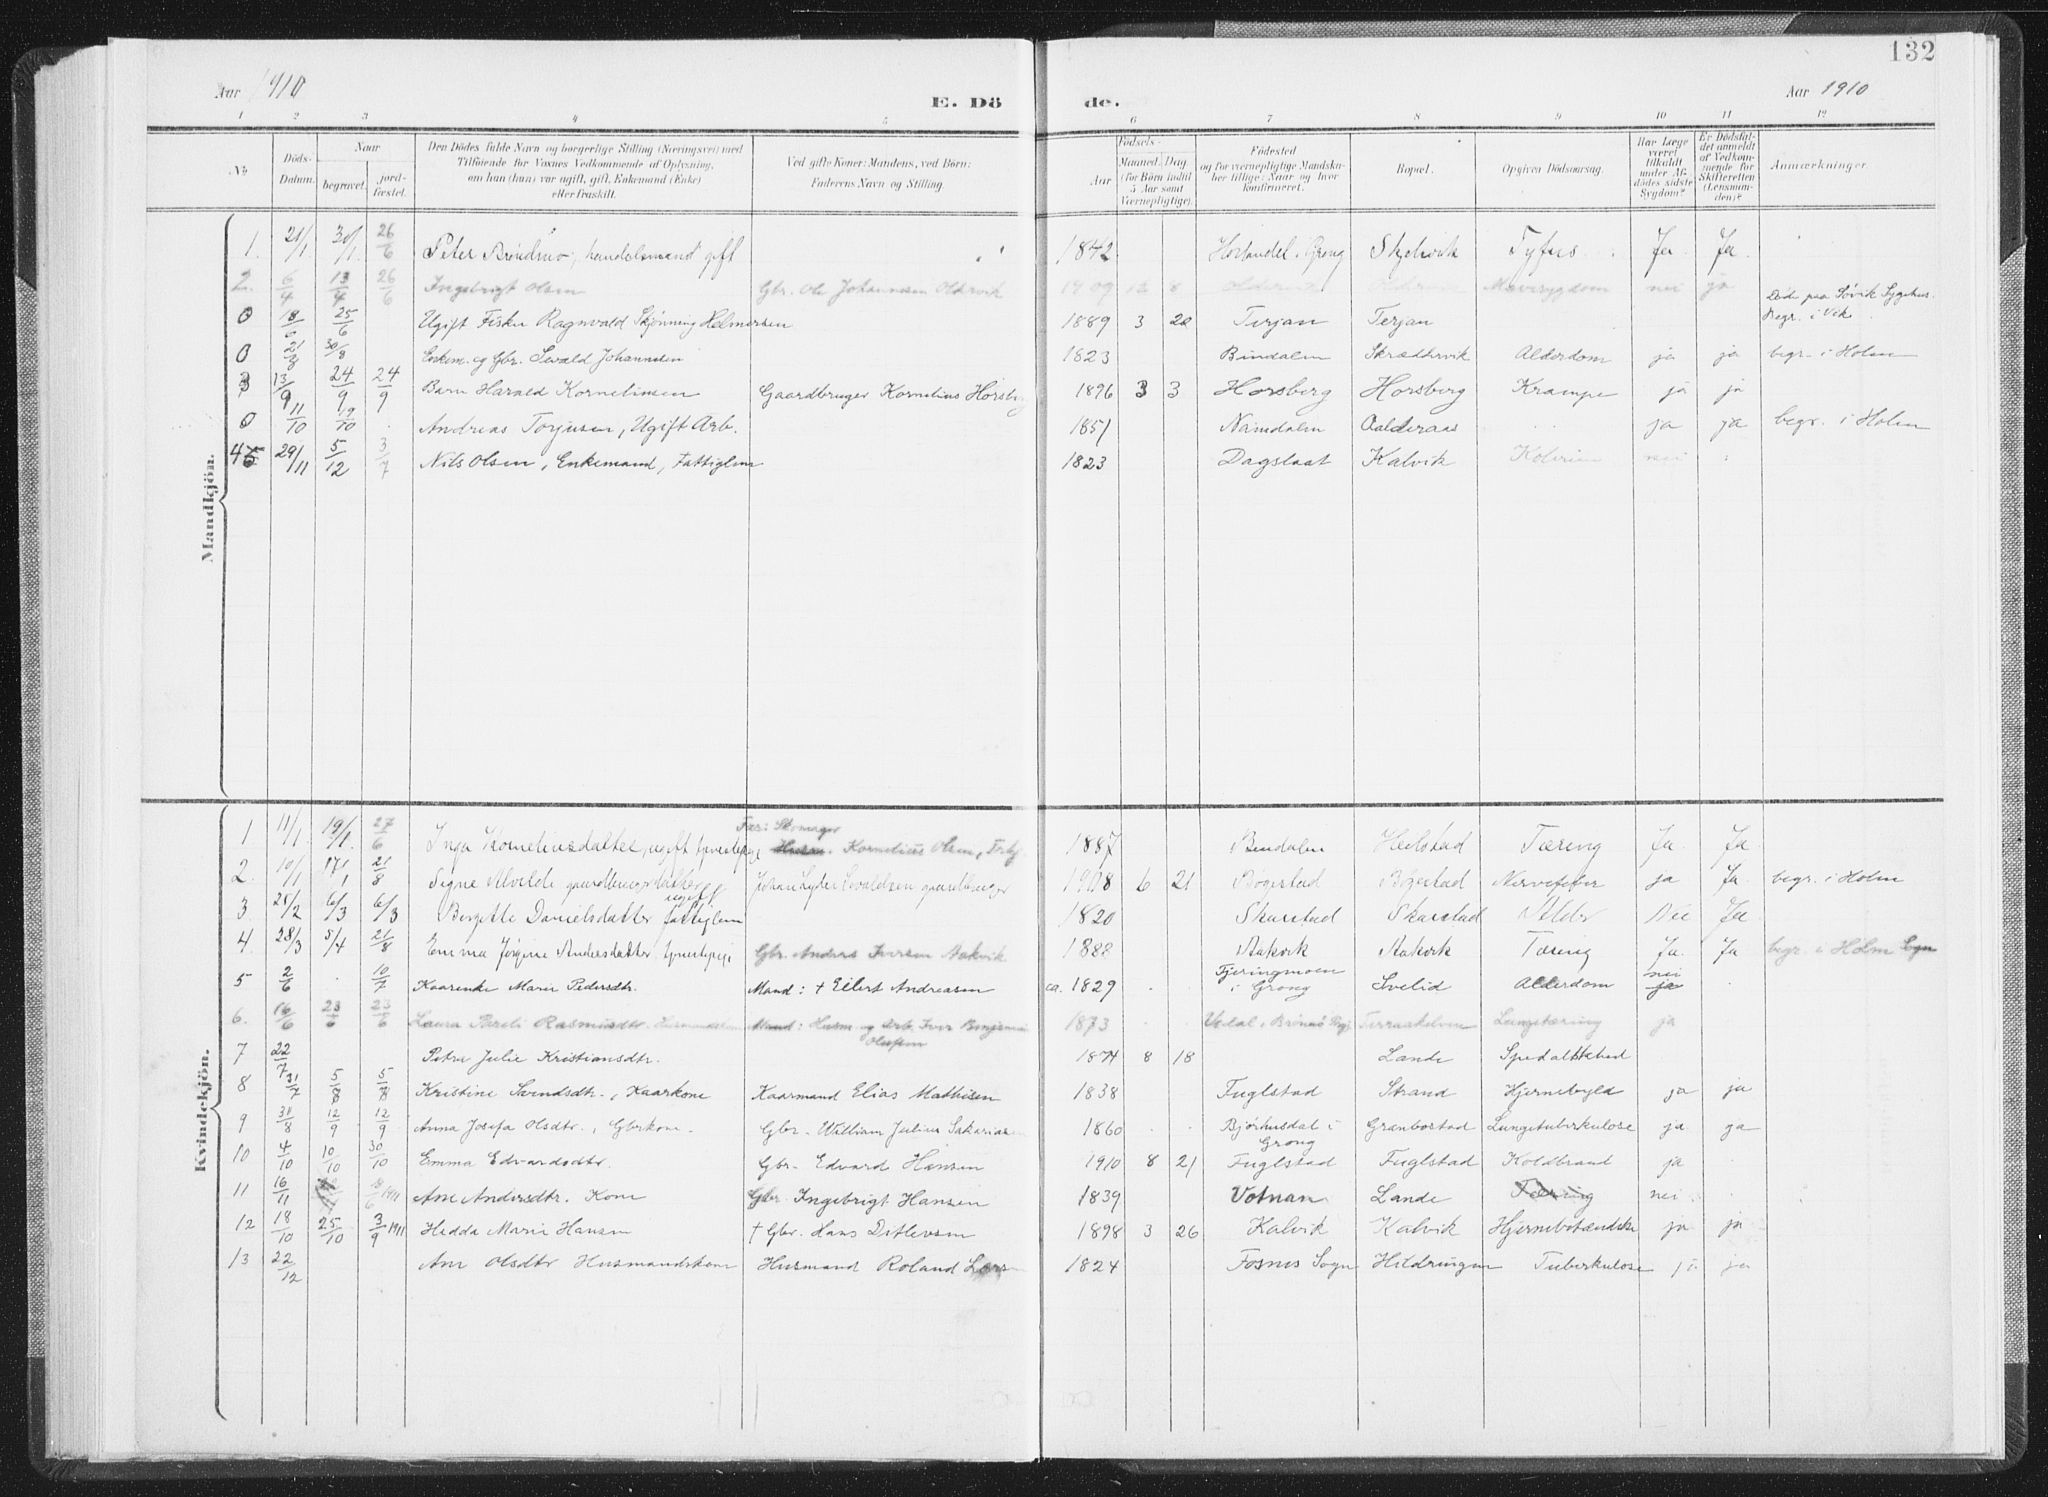 132
Aar 1910 E. Dö de. Aar 1910
1 2 3 4 5 6 7 8 9 10 11 12
No. Döds-Datum. Naar begravet. jordfæstet. Den Dödes fulde Navn og borgerlige Stilling (Næringsvei) med Tilföiende for Voxnes Vedkommende af Oplysning, om han (hun) var ugift, gift, Enkemand (Enke) eller fraskilt. Ved gifte Koner: Mandens, ved Börn: Faderens Navn og Stilling. Födsels- Aar Maaned. Dag (for Börn indtil 5 Aar samt Værnepligtige). Födested og for værnepligtige Mandskaber tillige: Naar og hvor konfirmeret. Bopæl. Opgiven Dödsaarsag. Har Læge været tilkaldt under Afdödes sidste Sygdom? Er Dödsfaldet anmeldt af Vedkommende for Skifteretten (Lensmanden)? Anmærkninger.
Mandkjön.
1. 21/1 30/1 26/6 Peter Brøndmo, handelsmand gift 1842 Hortandel i Grong Skjelvik Tyfus Ja. Ja.
2. 6/4 13/4 26/6 Ingebrigt Olsen Gbr. Ole Johannesen Oldervik 1909 12 Oldervik Oldervik Mavesygdom nei ja
0 18/6 25/6 Ugift Fisker Ragnvald Skjønning Helmersen 1889 3 20 Terjan Terjan Døde paa Søvik Sygehus. Begr. i Vik
0 21/8 30/8 Enkem. og Gbr. Sevald Johannesen 1823 Bindalen Skræddervik Alderdom ja ja begr. i Holm
3 13/9 24/9 24/9 Barn Harald Korneliusen Gaardbruger Kornelius Horsberg 1896 3 3 Horsberg Horsberg Krampe ja ja
0 11/10 19/10 Andreas Torjusen, Ugift Arb. 1851 Namdalen Aalderaas ja ja begr. i Holm
45 29/11 5/12 3/7 Nils Olsen, Enkemand, Fattiglem 1823 Dagslaat Kalvik Koldbrand nei
Kvindekjön.
1 11/1 19/1. 27/6 Inga Korneliusdatter, ugift tjenestepige Far: Skomager Husm. Kornelius Olsen, 1887 Bindalen Heilstad Tæring Ja. Ja.
2. 10/1 17/1 21/8 Signe Alvilde gaardbrugerdatter Johan Lyder Sevaldsen gaardbruger 1908 6 21 Bøgestad Bøgestad Nervefeber ja Ja. begr. i Holm
3. 25/2 6/3 6/3 Bergitte Danielsdatter ugift fattiglem 1820 Skarstad Skarstad Alder Nei Ja.
4. 28/3 5/4 21/8 Emma Jørgine Andersdatter tjenestepige Gbr. Anders Iversen Aakvik 1888 Aakvik Aakvik Tæring Ja. Ja begr. i Holm Sogn
5 2/6 10/7 Kaarenke Marie Pedersdtr. Mand: † Eilert Andreasen ca. 1829 Fjeringmoen i Grong Svelid Alderdom nei ja
6. 16/6 23/6 23/6 Laura Bereti Rasmusdtr. Husmandskone Mand: Husm. og Arb. Iver Benjamin Olufsen 1873 Vedal i Brønnø Terraakelven Lungetæring ja
7 22/7 Petra Julie Kristiansdtr. 1874 8 18 Lande Spedalskhed
8 31/7 5/8 5/8 Kristine Svendsdtr., Kaarkone Kaarmand Elias Mathisen 1838 Fuglstad Strand Hjernebyld ja ja
9 31/8 12/9 12/9 Anna Josefa Olsdtr., Gbrkone. Gbr. William Julius Sakariassen 1860 Bjørhusdal i Grong Granbostad Lungetuberkulose ja ja
10 4/10 10/10 30/10 Emma Edvardsdtr. Gbr. Edvard Hansen 1910 8 21 Fuglstad Fuglstad Koldbrand ja
11 16/11 1911 Ane Andersdtr. Kone Gbr. Ingebrigt Hansen 1839 Votnan Lande Tæring nei
12 18/10 25/10 3/9 1911 Hedda Marie Hansen † Gbr. Hans Ditlevsen 1898 3 26 Kalvik Kalvik Hjernebetændelse ja ja
13 22/12 Ane Olsdtr Husmandskone Husmand Roland Larsen 1824 Fosnes Sogn Hildringen Tuberkulose ja ja